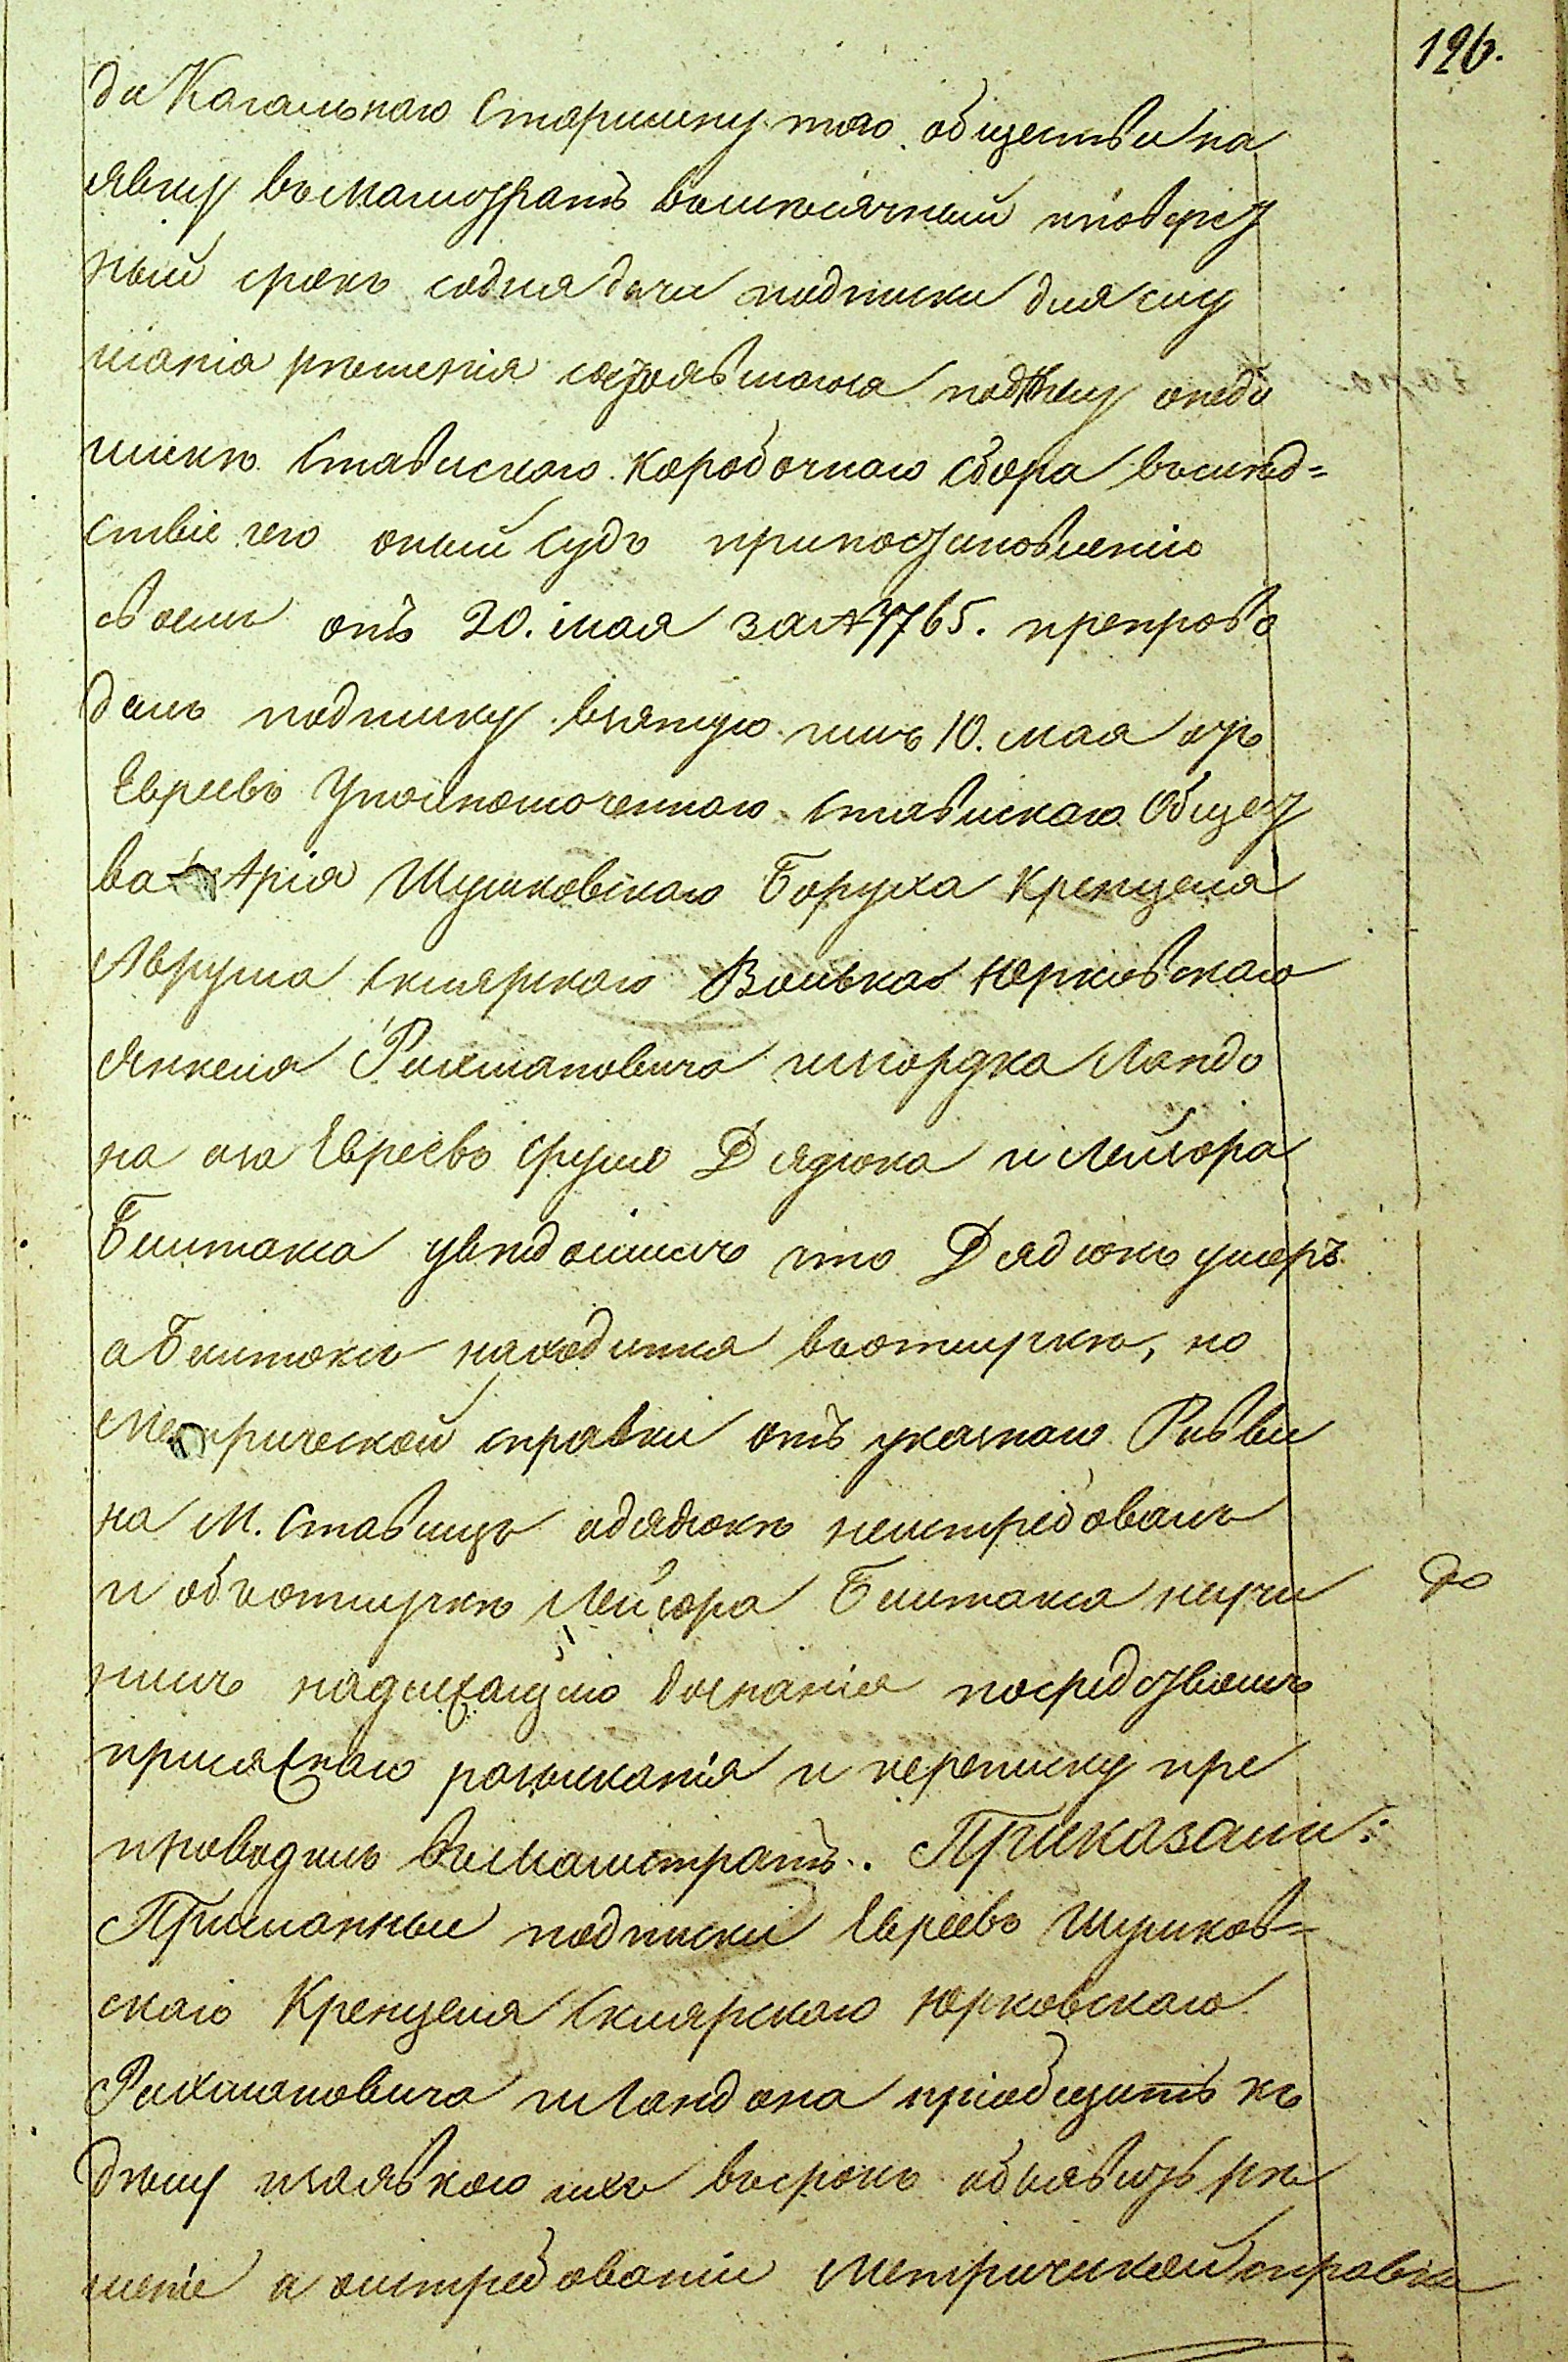 126.
да Кагальнаго Старшину того общества на
явку въ Магистратъ вшестимѣсячный иповерст
ный срокъ содня дачи подписки для слу
шанія решенія состоявшагося подѣлу онедо
имкѣ Ставискаго Коробочнаго сбора вслѣд=
ствіе чего оный судъ припостановленіи
своемъ отъ 20. мая за № 7765. препрово
дилъ подписку взятую имъ 10. мая отъ
Евреевъ Уполномоченнаго Ставискаго Общест
ва Арія Шушковскаго Боруха Кренцеля
Аврума Склярскаго Волька Юрковскаго
Янкеля Рихмановича иМордка Ландо
на аза Евреевъ Сруля Дядюка и Лейзора
Блитмака увѣдомилъ что Дядюкъ умеръ
а Блитмакъ находится вотлучкѣ, но
Метрической справки отъ указнаго Равви
на М. Ставищъ одядюкѣ неистребовалъ
и объотлучкѣ Лейзора Блитмака неучи
до
нилъ надлежащаго дознанія посредствомъ
присяжнаго розысканія и переписку пре
проводилъ въМагистратъ. Приказали:
Присланныя подписки Евреевъ Шушков=
скаго Кренцеля Склярскаго Юрковскаго
Рихмановича иЛандона пріобщить къ
дѣлу изаявкою ихъ всрокъ объявить рѣ
шеніе а оистребованіи Метрической справки